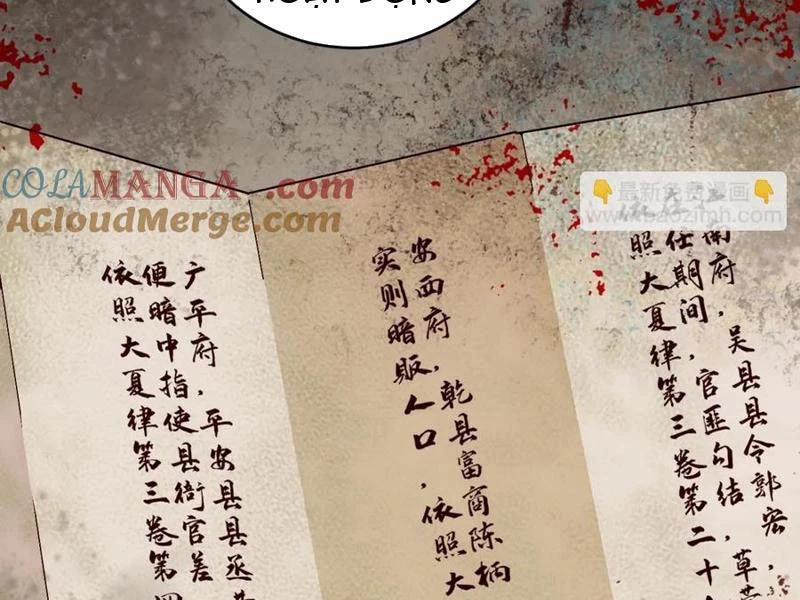 COLAMANGA.com
ACloudMerge.com
最新免费漫画
www.baozimh.com
府，吴县县令郭宏，
任期间，官匪勾结，草
依照大夏律第三卷第二十
安西府，乾县富商陈柄
实则暗贩人口，依照大
广平府，平安县县丞
便暗中指使县衙官差
依照大夏律第三卷第四